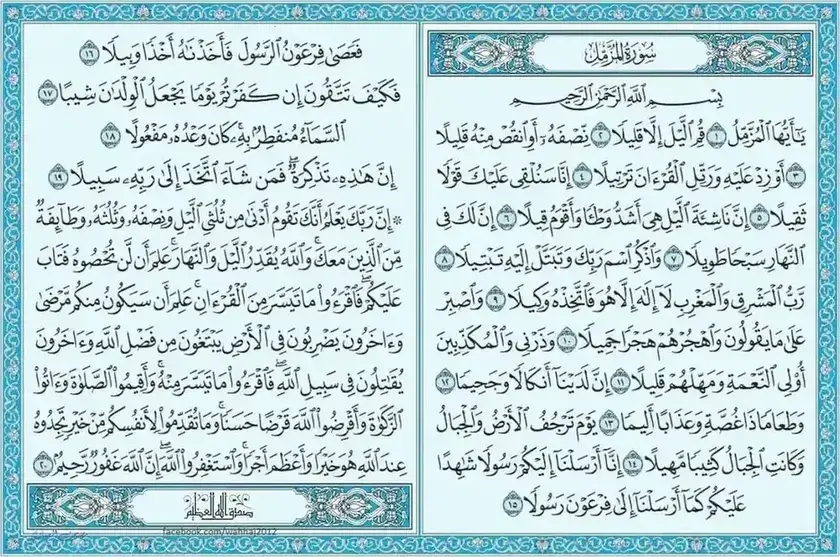 سُورَةُ المُزَّمِّلِ
بِسْمِ اللَّهِ الرَّحْمَٰنِ الرَّحِيمِ
يَٰٓأَيُّهَا الْمُزَّمِّلُ ١ قُمِ الَّيْلَ إِلَّا قَلِيلًا ٢ نِّصْفَهُۥٓ أَوِ انقُصْ مِنْهُ قَلِيلًا
٣ أَوْ زِدْ عَلَيْهِ وَرَتِّلِ الْقُرْءَانَ تَرْتِيلًا ٤ إِنَّا سَنُلْقِى عَلَيْكَ قَوْلًا
ثَقِيلًا ٥ إِنَّ نَاشِئَةَ الَّيْلِ هِىَ أَشَدُّ وَطْـًٔا وَأَقْوَمُ قِيلًا ٦ إِنَّ لَكَ فِى
النَّهَارِ سَبْحًا طَوِيلًا ٧ وَاذْكُرِ اسْمَ رَبِّكَ وَتَبَتَّلْ إِلَيْهِ تَبْتِيلًا ٨
رَّبُّ الْمَشْرِقِ وَالْمَغْرِبِ لَآ إِلَٰهَ إِلَّا هُوَ فَاتَّخِذْهُ وَكِيلًا ٩ وَاصْبِرْ
عَلَىٰ مَا يَقُولُونَ وَاهْجُرْهُمْ هَجْرًا جَمِيلًا ١٠ وَذَرْنِى وَالْمُكَذِّبِينَ
أُولِى النَّعْمَةِ وَمَهِّلْهُمْ قَلِيلًا ١١ إِنَّ لَدَيْنَآ أَنكَالًا وَجَحِيمًا ١٢
وَطَعَامًا ذَا غُصَّةٍ وَعَذَابًا أَلِيمًا ١٣ يَوْمَ تَرْجُفُ الْأَرْضُ وَالْجِبَالُ
وَكَانَتِ الْجِبَالُ كَثِيبًا مَّهِيلًا ١٤ إِنَّآ أَرْسَلْنَآ إِلَيْكُمْ رَسُولًا شَٰهِدًا
عَلَيْكُمْ كَمَآ أَرْسَلْنَآ إِلَىٰ فِرْعَوْنَ رَسُولًا ١٥
فَعَصَىٰ فِرْعَوْنُ الرَّسُولَ فَأَخَذْنَٰهُ أَخْذًا وَبِيلًا ١٦
فَكَيْفَ تَتَّقُونَ إِن كَفَرْتُمْ يَوْمًا يَجْعَلُ الْوِلْدَٰنَ شِيبًا ١٧
السَّمَآءُ مُنفَطِرٌۢ بِهِۦ كَانَ وَعْدُهُۥ مَفْعُولًا ١٨
إِنَّ هَٰذِهِۦ تَذْكِرَةٌ فَمَن شَآءَ اتَّخَذَ إِلَىٰ رَبِّهِۦ سَبِيلًا ١٩
۞ إِنَّ رَبَّكَ يَعْلَمُ أَنَّكَ تَقُومُ أَدْنَىٰ مِن ثُلُثَىِ الَّيْلِ وَنِصْفَهُۥ وَثُلُثَهُۥ وَطَآئِفَةٌ
مِّنَ الَّذِينَ مَعَكَ وَاللَّهُ يُقَدِّرُ الَّيْلَ وَالنَّهَارَ عَلِمَ أَن لَّن تُحْصُوهُ فَتَابَ
عَلَيْكُمْ فَاقْرَءُوا۟ مَا تَيَسَّرَ مِنَ الْقُرْءَانِ عَلِمَ أَن سَيَكُونُ مِنكُم مَّرْضَىٰ
وَءَاخَرُونَ يَضْرِبُونَ فِى الْأَرْضِ يَبْتَغُونَ مِن فَضْلِ اللَّهِ وَءَاخَرُونَ
يُقَٰتِلُونَ فِى سَبِيلِ اللَّهِ فَاقْرَءُوا۟ مَا تَيَسَّرَ مِنْهُ وَأَقِيمُوا۟ الصَّلَوٰةَ وَءَاتُوا۟
الزَّكَوٰةَ وَأَقْرِضُوا۟ اللَّهَ قَرْضًا حَسَنًا وَمَا تُقَدِّمُوا۟ لِأَنفُسِكُم مِّنْ خَيْرٍ تَجِدُوهُ
عِندَ اللَّهِ هُوَ خَيْرًا وَأَعْظَمَ أَجْرًا وَاسْتَغْفِرُوا۟ اللَّهَ إِنَّ اللَّهَ غَفُورٌ رَّحِيمٌۢ ٢٠
صدق الله العظيم
facebook.com/wahhaj2012